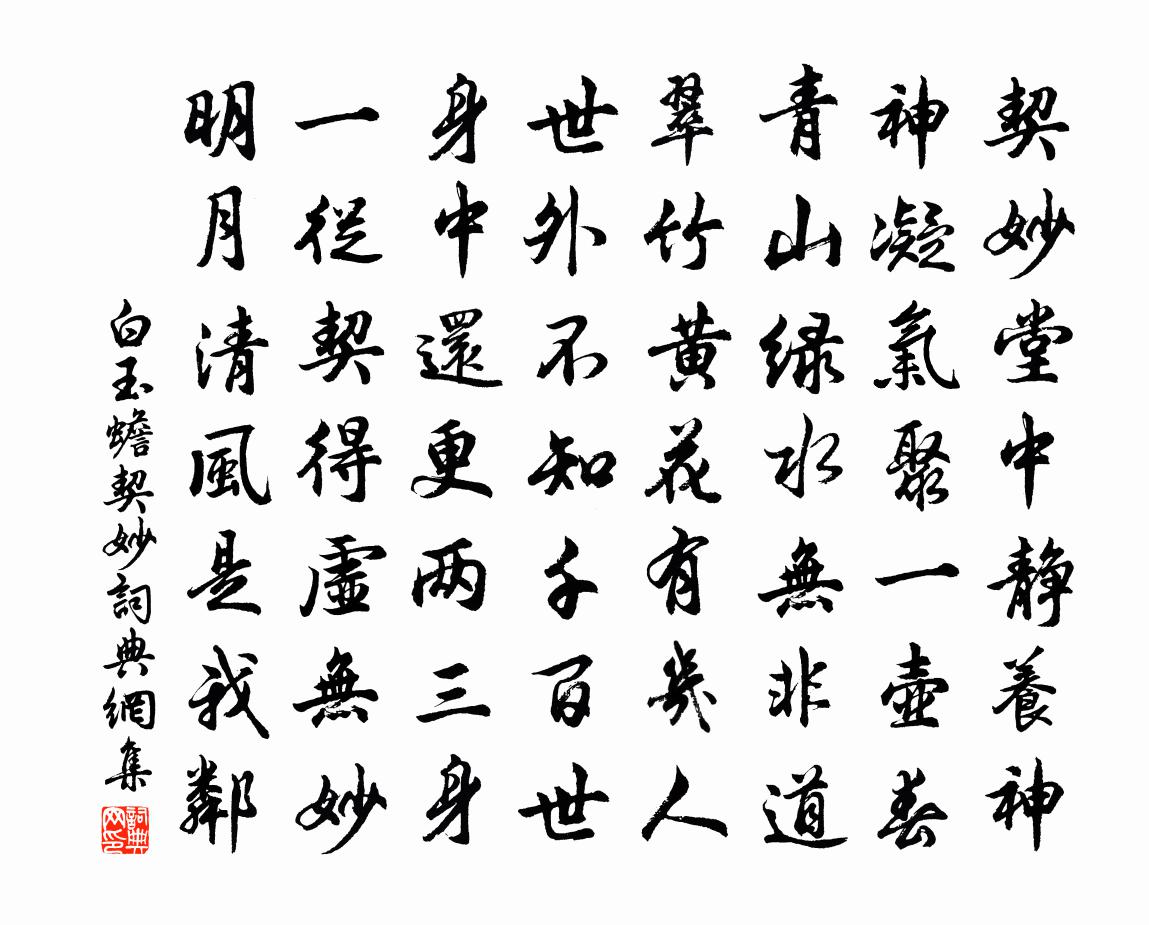 契妙堂中静養神
神凝氣聚一壺春
青山绿水無非道
翠竹黄花有幾人
世外不知千百世
身中還更两三身
一從契得虛無妙
明月清風是我鄰
白玉蟾契妙詞典網集
詞典网印